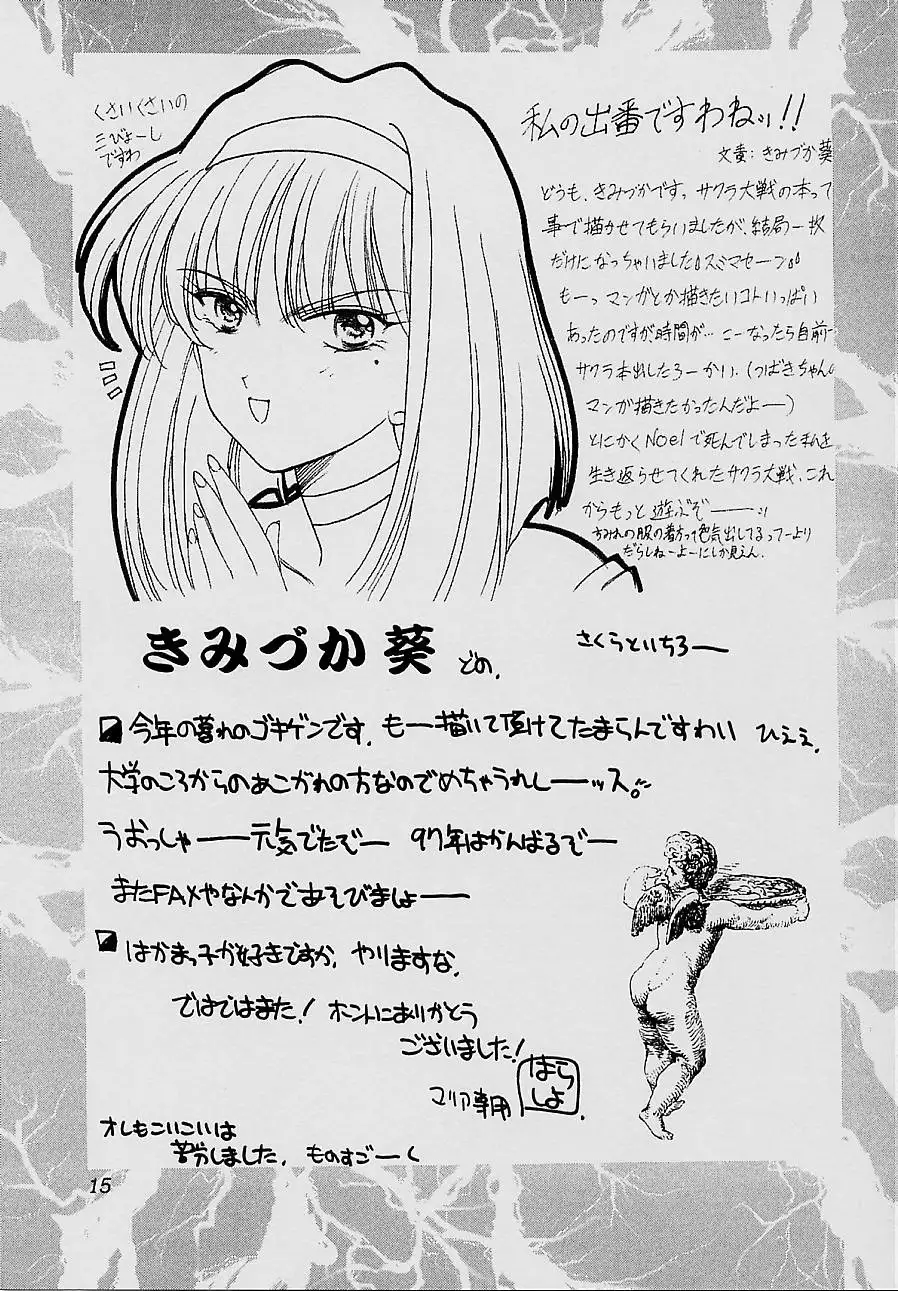 くさいくさいの
三びょーし
ですわ
私の出番ですわねッ!!
文責:きみづか葵
どうも、きみづかです。サクラ大戦の本って
事で描かせてもらいましたが、結局一枚
だけになっちゃいました。スミマセーン。
もーっ マンガとか描きたいコトいっぱい
あったのですが、時間が… こーなったら自前で
サクラ本出したろーかい、(つばきちゃんの
マンガ描きたかったんだよー)
とにかくNoëlで死んでしまった私を
生き返らせてくれたサクラ大戦、これ
からもっと遊ぶぞーーッ
すみれの服の着方って色気出してるってーより
だらしねーよーにしか見えん。
きみづか 葵 どの、
さくらといちろー
今年の暮れのゴキゲンです。もー描いて頂けてたまらんですわい ひええ。
大学のころからのあこがれの方なのでめちゃうれしーーッス。
うおっしゃーー元気でたぞー 97年はがんばるぞー
またFAXやなんかであそびましょーー
はかまっ子が好きですか、やりますな。
ではではまた! ホントにありがとう
ございました!
マリア専用
はらしょ
オレもこいこいは
苦労しました、ものすごーく
15